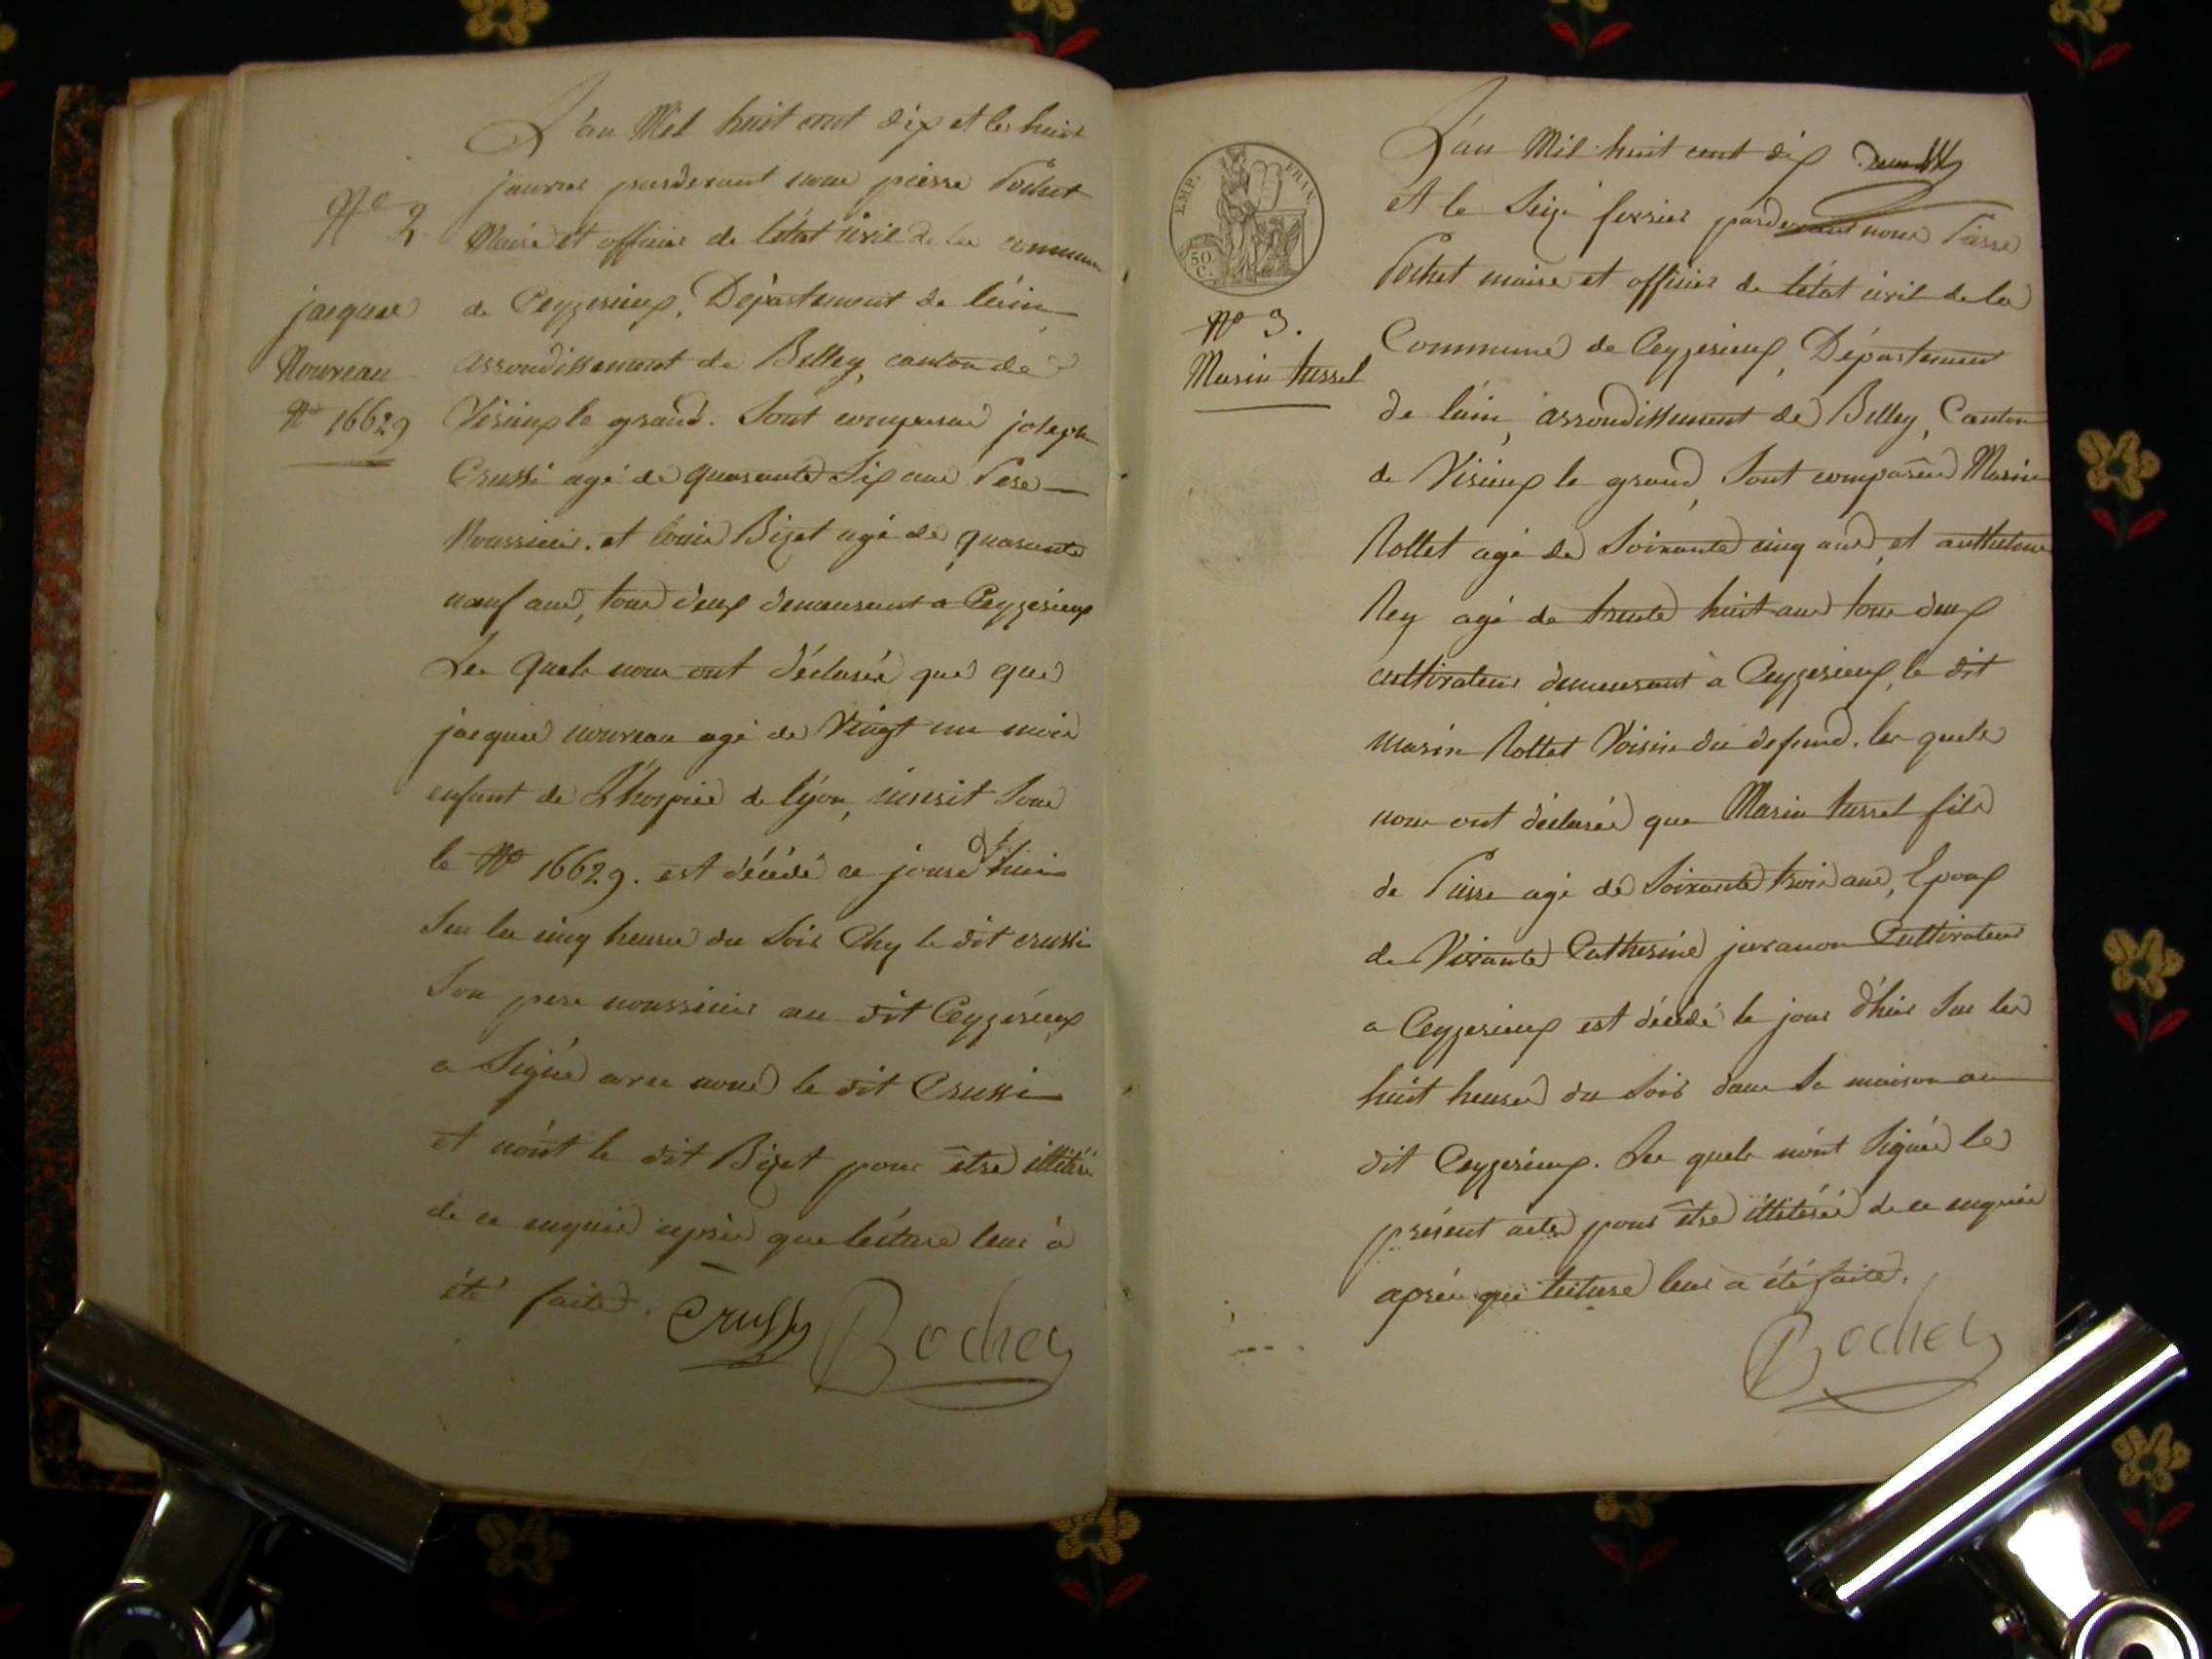 N° 2
jacques
Nouveau
N° 16629
L'an Mil huit cent dix et le huit
janvier pardevant nous pierre Pochet
Maire et officier de l'état civil de la commune
de Ceyzerieux, Département de l'ain
arrondissement de Belley, canton de
Virieux le grand. Sont comparus joseph
Crussi agé de quarante Six ans Pere
Nourricier. et louis Bizet agé de quarante
neuf ans, tous deux demeurant a Ceyzerieux
Les quels nous ont déclarés que que
jacques nouveau agé de Vingt un mois
enfant de L'hospice de lyon, inscrit Sous
le N° 16629. est décédé ce jourd'hui
Sur les cinq heures du Soir Chez le dit crussi
Son pere nourricier au dit Ceyzérieux
a Signé avec nous le dit Crussi
et nont le dit Bizet pour être illitéré
de ce enquis après que lécture leur à
été faite.
Crussy Bochet
EMP. FRAN.
50
C.
N° 3.
Marin tussel
L'an Mil huit cent dix
et le Seize fevrier pardevant nous Pierre
Pochet maire et officier de l'état civil de la
Commune de Ceyzerieux, Département
de l'ain, arrondissement de Belley, Canton
de Virieux le grand, Sont comparus Marin
Rollet agé de Soixante cinq ans, et anthelme
Rey agé de trente huit ans tous deux
cultivateurs demeurant à Ceyzerieux, le dit
marin Rollet Voisin du defund. les quels
nous ont déclarés que Marin tussel fils
de Pierre agé de Soixante trois ans, Epoux
de Vivante Catherine juvanon Cultivateur
a Ceyzerieux est décédé le jour d'hier Sur les
huit heures du Soir dans Sa maison au
dit Ceyzerieux. Les quels n'ont Signés le
présent acte pour être illitérés de ce enquis
après que lecture leur a été faite.
Bochet